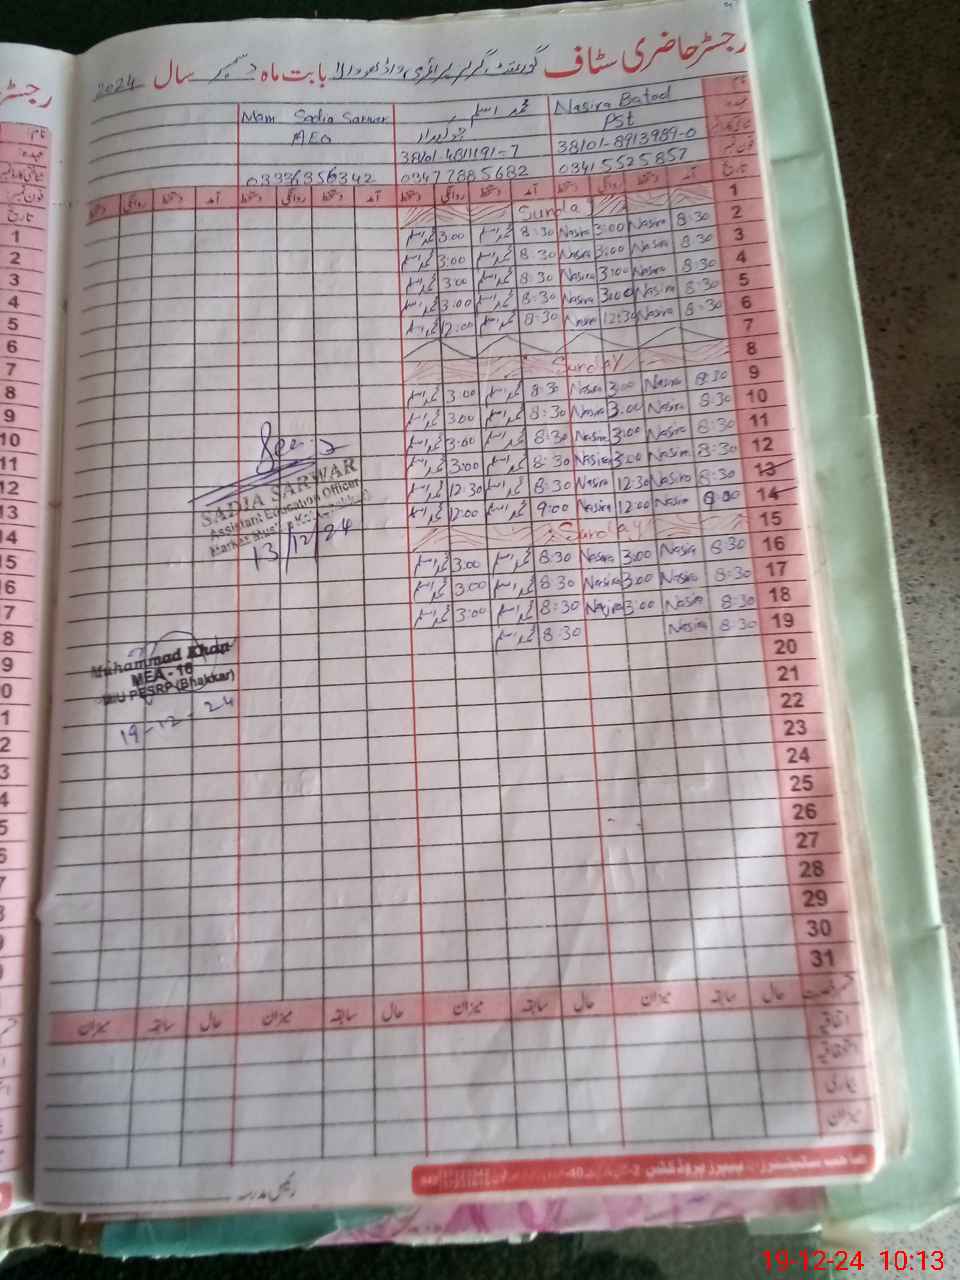 رجسٹر حاضری سٹاف گورنمنٹ گرلز پرائمری بابت ماہ دسمبر سال 2024
نام Nasira Batool محمد اسلم Mam Sadia Sarwar
عہدہ PST چوکیدار AEO
38101-8913989-0
فون نمبر 03415525857 03477885682 03336356342
تاریخ آمد دستخط روانگی دستخط آمد دستخط روانگی دستخط آمد دستخط روانگی دستخط آمد دستخط روانگی دستخط
1 Sunday
2 8:30 Nasira 3:00 Nasira 8:30 محمد اسلم 3:00 محمد اسلم
3 8:30 Nasira 3:00 Nasira 8:30 محمد اسلم 3:00 محمد اسلم
4 8:30 Nasira 3:00 Nasira 8:30 محمد اسلم 3:00 محمد اسلم
5 8:30 Nasira 3:00 Nasira 8:30 محمد اسلم 3:00 محمد اسلم
6 8:30 Nasira 12:30 Nasira 8:30 محمد اسلم 12:00 محمد اسلم
7
8 Sunday
9 8:30 Nasira 3:00 Nasira 8:30 محمد اسلم 3:00 محمد اسلم
10 8:30 Nasira 3:00 Nasira 8:30 محمد اسلم 3:00 محمد اسلم
11 8:30 Nasira 3:00 Nasira 8:30 محمد اسلم 3:00 محمد اسلم
12 8:30 Nasira 3:00 Nasira 8:30 محمد اسلم 3:00 محمد اسلم
13 8:30 Nasira 12:30 Nasira 8:30 محمد اسلم 12:30 محمد اسلم
14 Nasira 12:00 Nasira 9:00 محمد اسلم 12:00 محمد اسلم
15 Sunday
16 8:30 Nasira 3:00 Nasira 8:30 محمد اسلم 3:00 محمد اسلم
17 8:30 Nasira 3:00 Nasira 8:30 محمد اسلم 3:00 محمد اسلم
18 8:30 Nasira 3:00 Nasira 8:30 محمد اسلم 3:00 محمد اسلم
19 8:30 Nasira 8:30 محمد اسلم
20
21
22
23
24
25
26
27
28
29
30
31
SADIA SARWAR
Assistant Education Officer
13/12/24
Muhammad Khan
MEA - 16
MIU PESRP (Bhakkar)
19-12-24
حال سابقہ میزان حال سابقہ میزان حال سابقہ میزان حال سابقہ میزان
اتفاقیہ
استحقاقیہ
بیماری
میزان
رئیس مدرسہ
رجسٹر
نام
عہدہ
فون نمبر
تاریخ
1
2
3
4
5
6
7
8
9
10
11
12
13
14
15
16
17
19-12-24 10:13